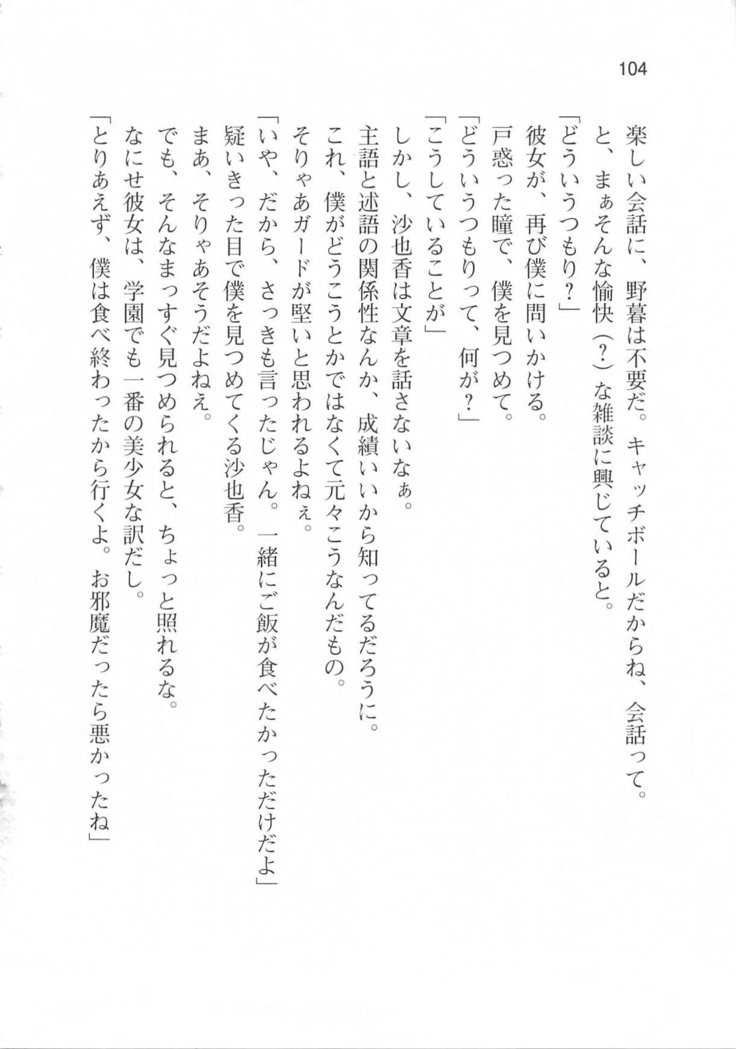 104
楽しい会話に、野暮は不要だ。キャッチボールだからね、会話って。
と、まぁそんな愉快（？）な雑談に興じていると。
「どういうつもり？」
彼女が、再び僕に問いかける。
戸惑った瞳で、僕を見つめて。
「どういうつもりって、何が？」
「こうしていることが」
しかし、沙也香は文章を話さないなぁ。
主語と述語の関係性なんか、成績いいから知ってるだろうに。
これ、僕がどうこうとかではなくて元々こうなんだもの。
そりゃあガードが堅いと思われるよねぇ。
「いや、だから、さっきも言ったじゃん。一緒にご飯が食べたかっただけだよ」
疑いきった目で僕を見つめてくる沙也香。
まあ、そりゃあそうだよねえ。
でも、そんなまっすぐ見つめられると、ちょっと照れるな。
なにせ彼女は、学園でも一番の美少女な訳だし。
「とりあえず、僕は食べ終わったから行くよ。お邪魔だったら悪かったね」